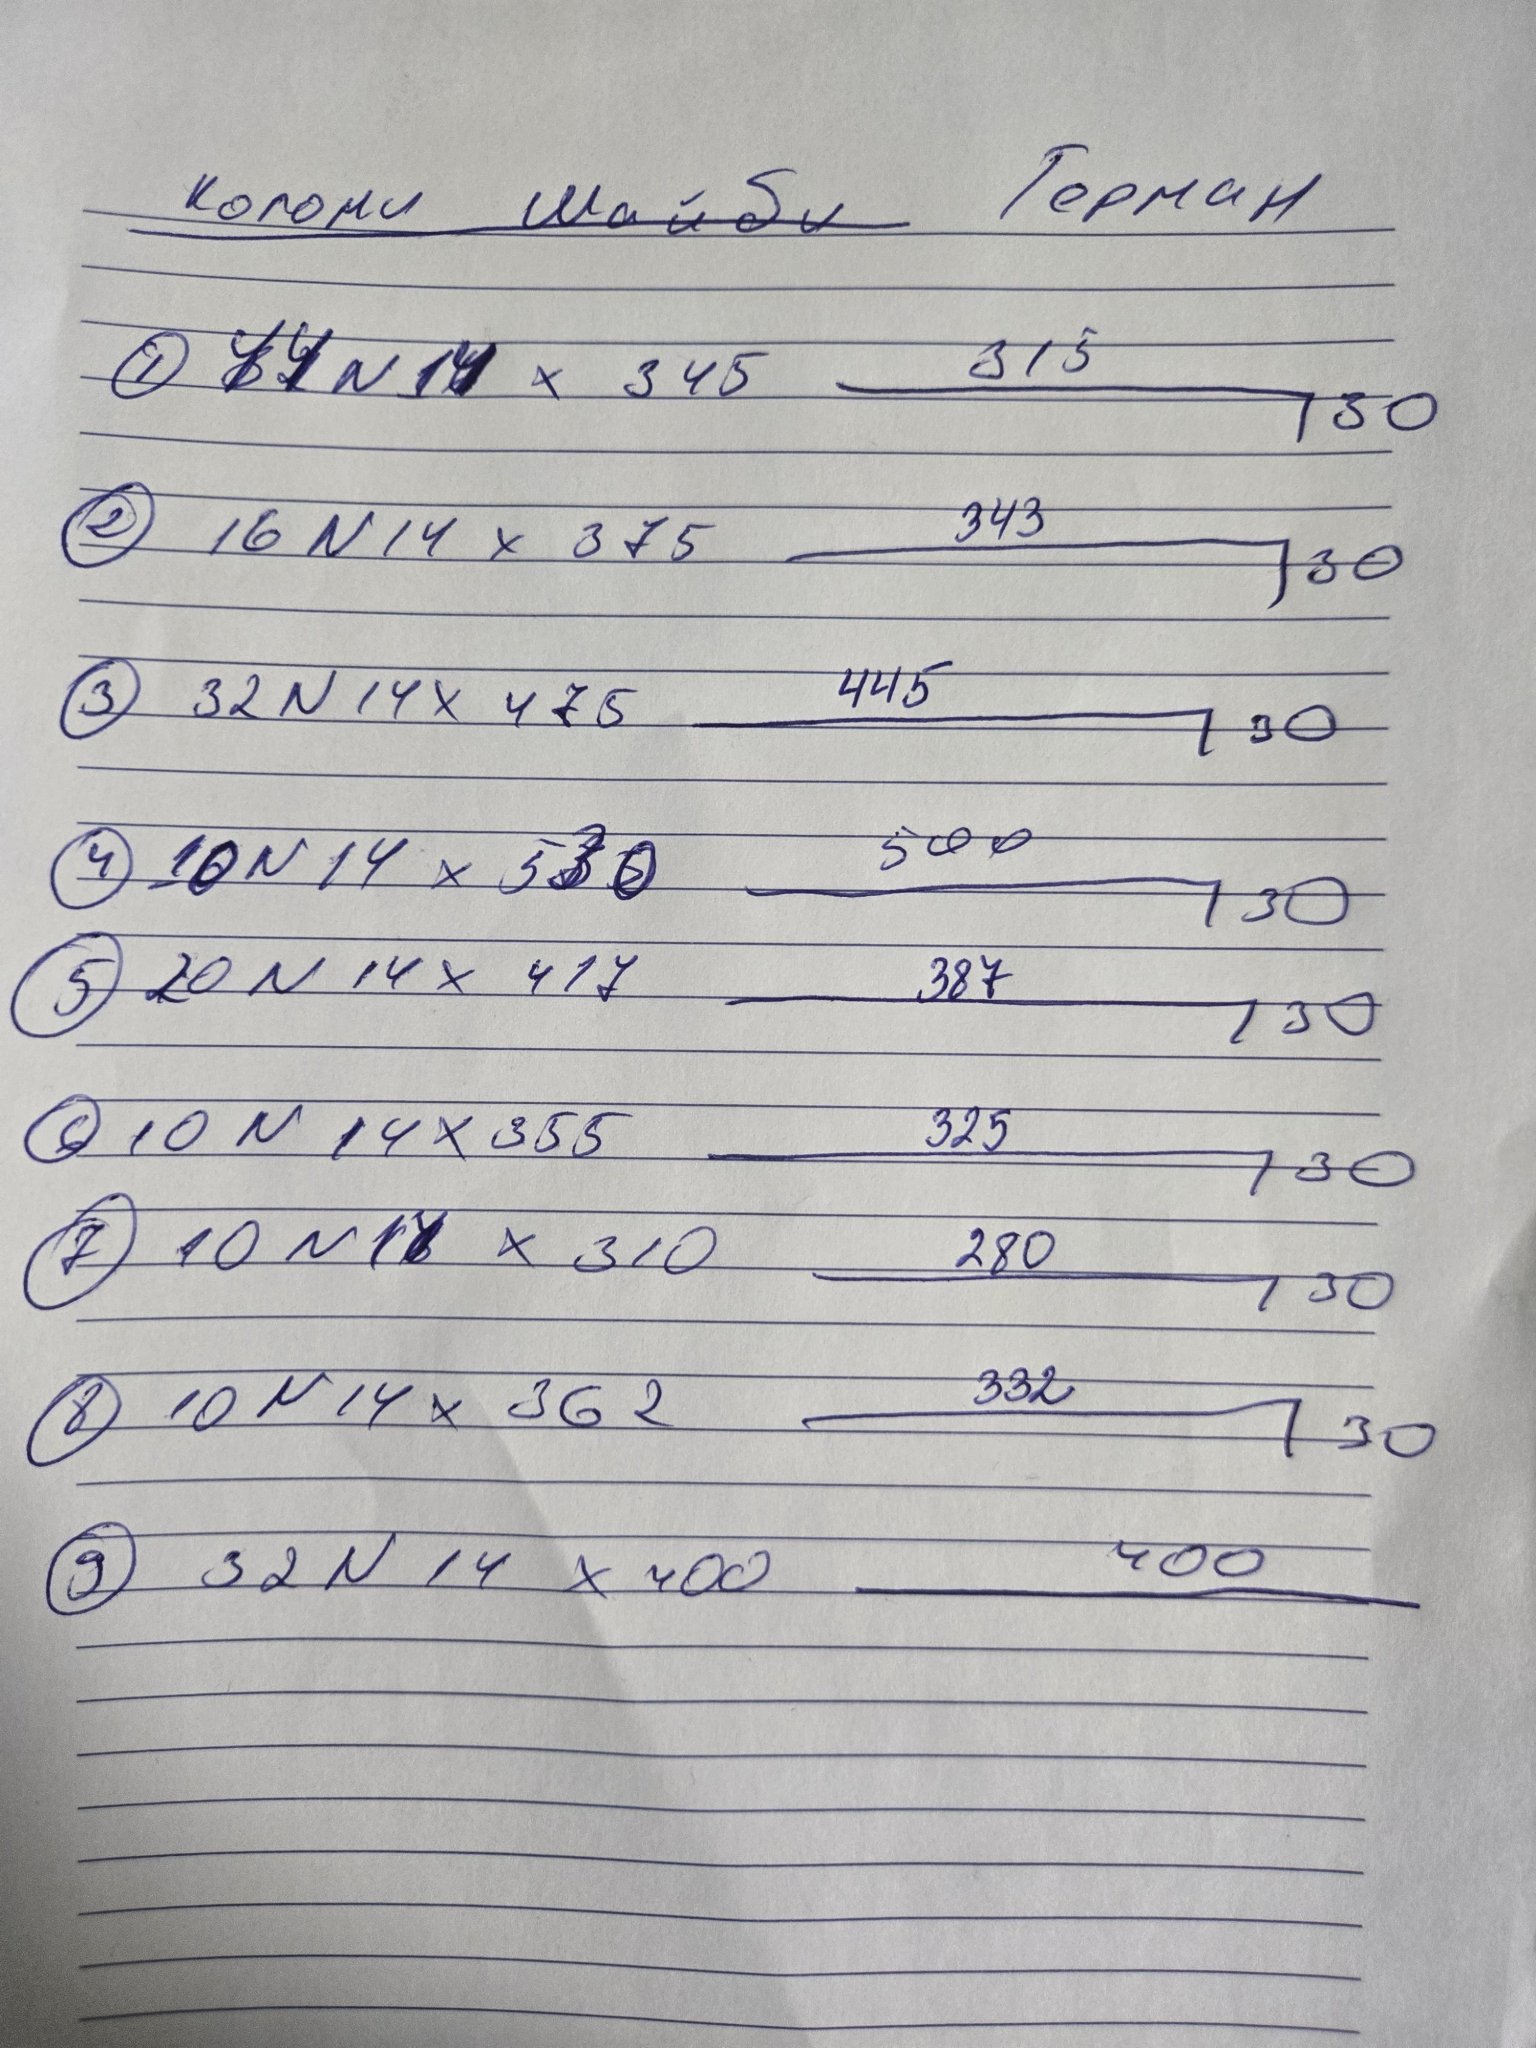 колони шайби Герман
① 44 N 14 x 345 315 30
② 16 N 14 x 375 343 30
③ 32 N 14 x 475 445 30
④ 10 N 14 x 530 500 30
⑤ 20 N 14 x 417 387 30
⑥ 10 N 14 x 355 325 30
⑦ 10 N 14 x 310 280 30
⑧ 10 N 14 x 362 332 30
⑨ 32 N 14 x 400 400